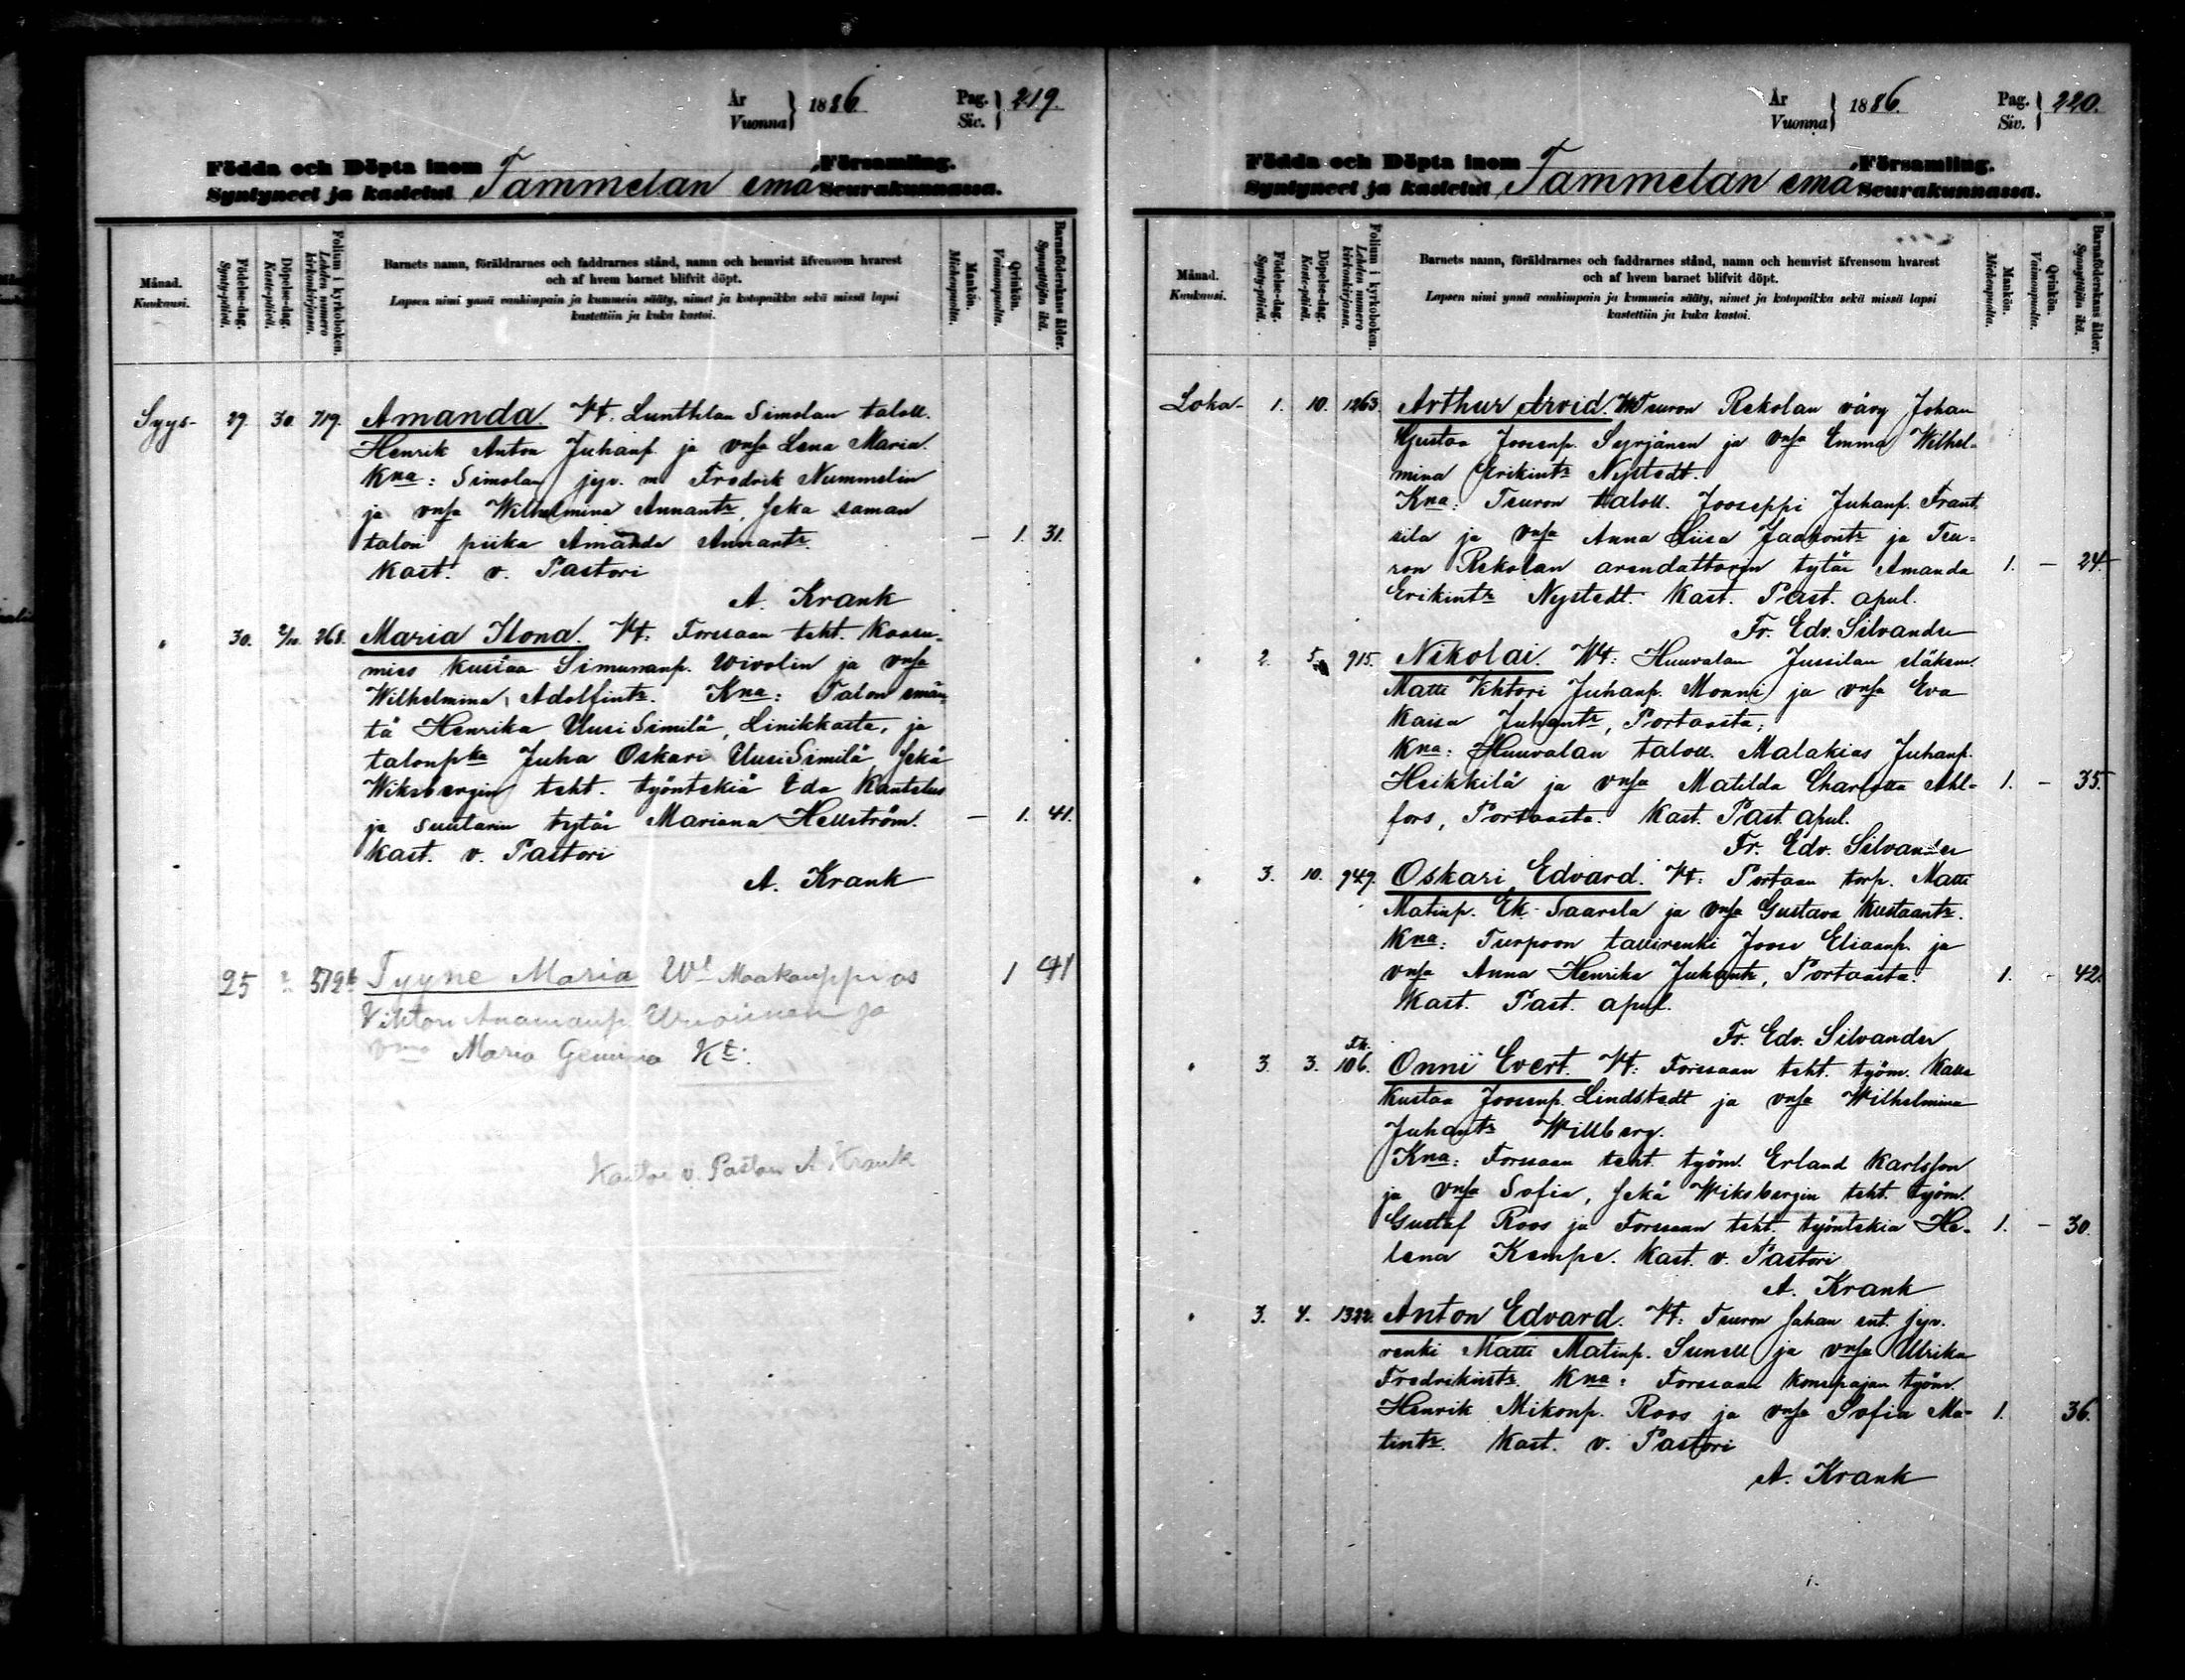 År Vuonna } 1886. Pag. Siv. } 219.
Födda och Döpta inom Församling.
Syntyneet ja kastetut Tammelan emä Seurakunnassa.
Månad. Kuukausi.
Födelse-dag. Synty-päivä.
Döpelse-dag. Kaste-päivä.
Folium i kyrkoboken. Lehden numero kirkonkirjassa.
Barnets namn, föräldrarnes och faddrarnes stånd, namn och hemvist äfvensom hvarest
och af hvem barnet blifvit döpt.
Lapsen nimi ynnä vanhimpain ja kummein sääty, nimet ja kotopaikka sekä missä lapsi
kastettiin ja kuka kastoi.
Mankön. Miehenpuolta.
Qvinkön. Vaimonpuolta.
Barnaföderskans ålder. Synnyttäjän ikä.
Syys- 29. 30. 719. Amanda. Vt. Simolan taloll.
Henrik Anton Juhanp. ja vnsa Lena Maria.
Kna: Simolan jyv. m Fredrik Nummelin
ja vnsa Wilhelmina Annantr, seka saman
talon piika Amanda Annantr. — 1. 31.
Kast. v. Pastori
A. Krank
" 30. 2/10. 268. Maria Ilona. Vt: Forssaan teht.
mies Kustaa Simunanp. Wivolin ja vnsa
Wilhelmina Adolfintr. Kna: Talon emän-
tä Henrika Uusi Similä, Linikkasta, ja
talonpka Juha Oskari Uusi Similä sekä
Wiksbergin teht. työntekiä Eda Kantelus
ja suutarin tytär Mariana Hellström. — 1. 41.
Kast. v. Pastori
A. Krank
25 579 Tyyne Maria Wt Maakauppias 1 41
Viktori ja
vmo Maria Kt:
Kastoi v. Pastori A Krank
År Vuonna } 1886. Pag. Siv. } 220.
Födda och Döpta inom Församling.
Syntyneet ja kastetut Tammelan emä Seurakunnassa.
Månad. Kuukausi.
Födelse-dag. Synty-päivä.
Döpelse-dag. Kaste-päivä.
Folium i kyrkoboken. Lehden numero kirkonkirjassa.
Barnets namn, föräldrarnes och faddrarnes stånd, namn och hemvist äfvensom hvarest
och af hvem barnet blifvit döpt.
Lapsen nimi ynnä vanhimpain ja kummein sääty, nimet ja kotopaikka sekä missä lapsi
kastettiin ja kuka kastoi.
Mankön. Miehenpuolta.
Qvinkön. Vaimonpuolta.
Barnaföderskans ålder. Synnyttäjän ikä.
Loka- 1. 10. 1263. Arthur Arvid. Vt Teuron Rekolan vävy Johan
Gustaa Joosenp. Syrjänen ja vnsa Emma Wilhel-
mina Erikintr Nystedt.
Kna: Teuron taloll. Jooseppi Juhanp. Frant
sila ja vnsa Anna Liisa Jaakontr ja Teu-
ron Rekolan arendattorin tytär Amanda 1. — 24.
Erikintr Nystedt. Kast. Past. apul.
Fr. Edv. Silvander
" 2. 5. 915. Nikolai. Vt: Huuvalan Jussilan eläkem.
Matti Vihtori Juhanp. Monni ja vnsa Eva
Kaisa Juhantr, Portaasta;
Kna: Huuvalan taloll. Malakias Juhanp.
Heikkilä ja vnsa Matilda Charlotta Ahl- 1. — 35.
fors, Portaasta. Kast. Past. apul.
Fr. Edv. Silvander
" 3. 10. 949. Oskari Edvard. Vt: Portaan torp. Matti
Matinp. Ek-Saarela ja vnsa Gustava Kustaantr.
Kna: Turpoon renki Joose Eliaanp. ja
vnsa Anna Henrika Juhantr, Portaasta. 1. - 42.
Kast. Past. apul.
Fr. Edv. Silvander
" 3. 3. 106. Onni Evert. Vt: Forssaan teht. työm. Kalle
Kustaa Joosenp. Lindstedt ja vnsa Wilhelmina
Juhantr Willberg.
Kna: Forssaan teht. työm. Erland Karlsson
ja vnsa Sofia, sekä Wiksbergin teht. työm.
Gustaf Roos ja Forssaan teht. työntekia He- 1. — 30.
lena Kempe. Kast. v. Pastori
A. Krank
" 3. 4. 1322. Anton Edvard. Vt: Teuron sahan ent. jyv.
renki Matti Matinp. Sunell ja vnsa Ulrika
Fredrikintr. Kna: Forssaan konepajan työm.
Henrik Mikonp. Roos ja vnsa Sofia Ma- 1. 36.
tintr. Kast. v. Pastori
A. Krank